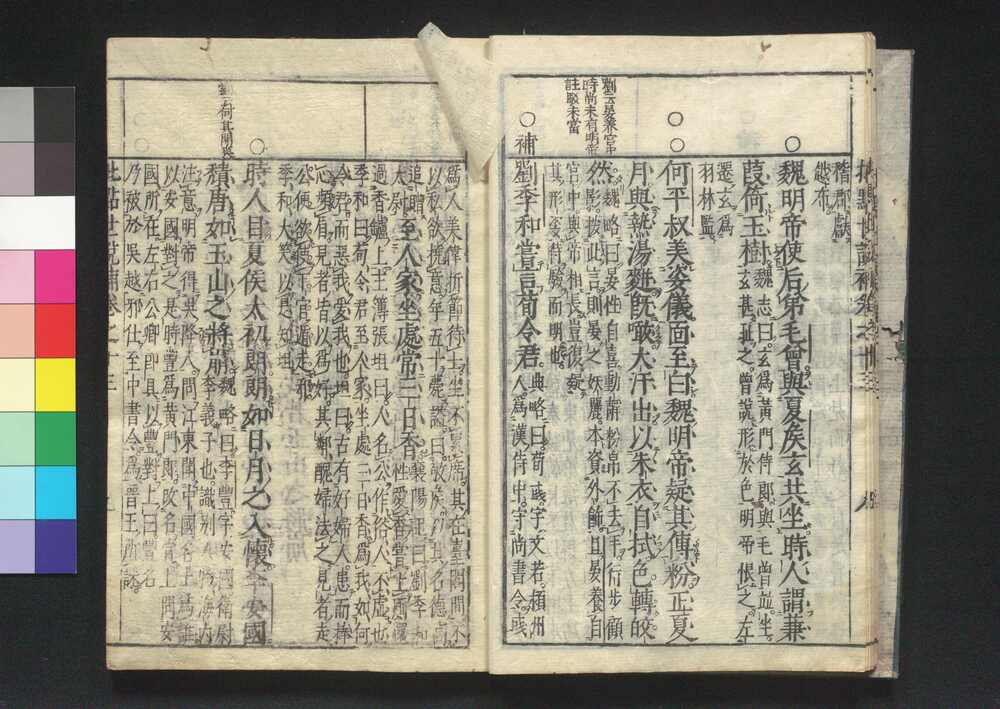 魏明帝使后弟毛曾與夏侯玄共坐時人謂蒹
葭倚玉樹魏志曰玄爲黃門侍郎與毛曾並坐
玄甚恥之曾說形於色明帝恨之左
遷玄爲
羽林監
劉云晏養宮中
時尚未有明帝
註駁未當
何平叔美姿儀面至白魏明帝疑其傳粉正夏
月與熱湯麪既噉大汗出以朱衣自拭色轉皎
然魏略曰晏性自喜動靜粉帛不去手行步顧
影按此言則晏之妖麗本資外飾且晏養自
宮中與帝相長豈復疑
其形姿待驗而明也
補劉季和嘗言荀令君典略曰荀彧字文若潁川
人爲漢侍中守尚書令彧
爲人美偉折節待士坐不累席其在臺閣間不
以私欲撓意年五十薨諡曰敬侯以其名德高
追贈
太尉至人家坐處常三日香襄陽記曰劉季和
性愛香嘗上廁還
過香爐上主簿張坦曰人名公作俗人不虛也
季和曰荀令君至人家坐處三日香爲我如何
令君而惡我愛我也坦曰古有好婦人患而捧
心嚬眉見者皆以爲好其鄰醜婦法之見者走
公便欲使下官遁走邪
季和大笑以是知坦
時人目夏侯太初朗朗如日月之入懷李安國
積唐如玉山之將崩魏略曰李豐字安國衛尉
李義子也識別人物海內
注意明帝得吳降人問江東聞中國名士爲誰
以安國對之是時豐爲黃門郎改名宣上問安
國所在左右公卿即具以豐對上曰豐名
乃被於吳越邪仕至中書令爲晉王所誅
批點世說補卷之十三